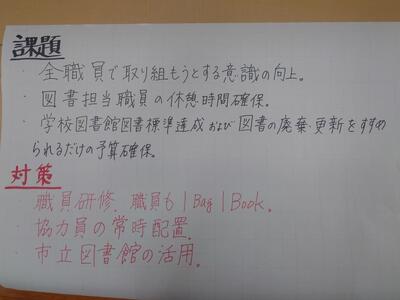 課題
・全職員で取り組もうとする意識の向上。
・図書担当職員の休憩時間確保。
・学校図書館図書標準達成および図書の廃棄・更新をすすめ
られるだけの予算確保。
対策
・職員研修、職員も1Bag1Book。
・協力員の常時配置。
・市立図書館の活用。